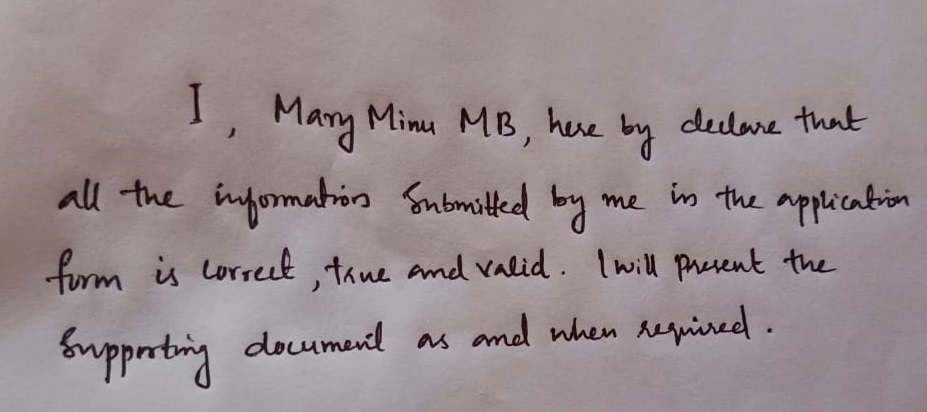 I, Mary Minu MB, here by declare that
all the information Submitted by me in the application
form is correct, true and valid. I will present the
Supporting document as and when required.